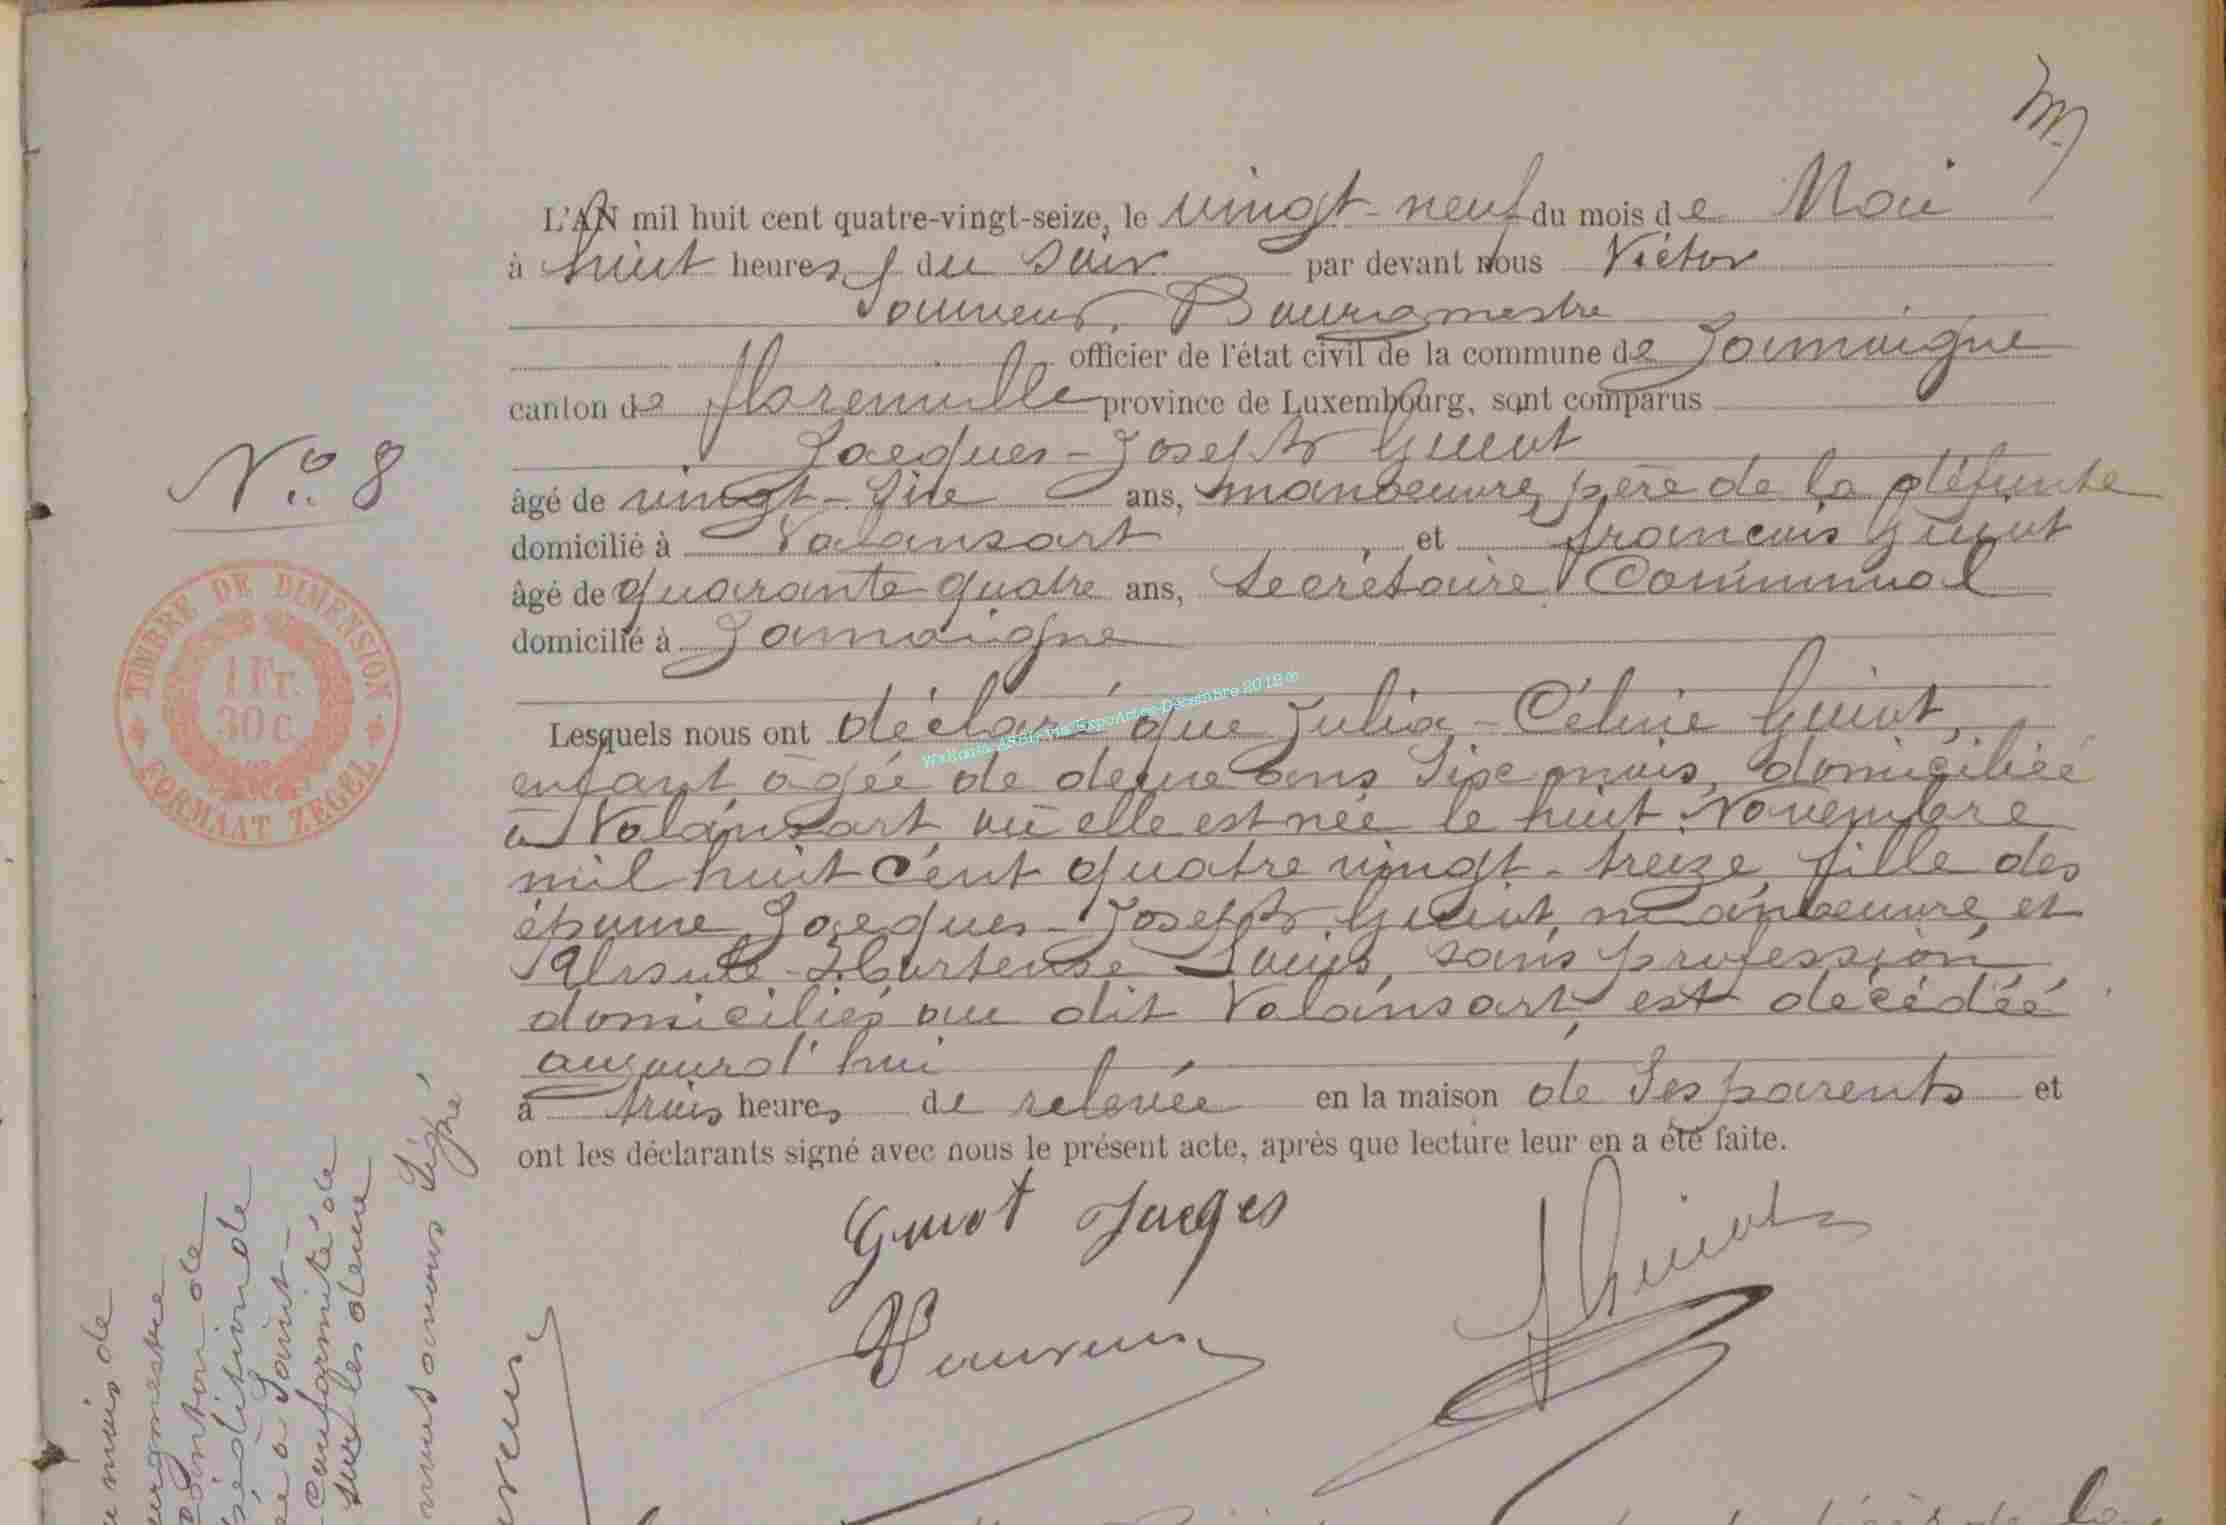 L'AN mil huit cent quatre-vingt-seize, le vingt-neuf du mois de Mai
à huit heures du soir par devant nous Victor
Bourgmestre
officier de l'état civil de la commune de Jamoigne
canton de florenville province de Luxembourg, sont comparus
Jacques-Joseph Guiot
âgé de vingt-six ans, manoeuvre, père de la défunte
domicilié à Valansart, et françois Guiot
âgé de quarante quatre ans, secrétaire Communal
domicilié à Jamoigne
N° 8
TIMBRE DE DIMENSION
1 Fr.
30 c.
FORMAAT ZEGEL
Lesquels nous ont déclaré que Julia-Céline Guiot,
enfant âgée de deux ans six mois, domiciliée
à Valansart où elle est née le huit Novembre
mil huit cent quatre vingt-treize, fille des
époux Jacques-Joseph Guiot, manoeuvre, et
Ursule-Hortense Louis, sans profession,
domiciliés au dit Valansart, est décédée
aujourd'hui
à trois heures de relevée en la maison de ses parents et
ont les déclarants signé avec nous le présent acte, après que lecture leur en a été faite.
Guiot Jacques
Guiot
mois de
Bourgmestre
canton de
expédition de
conformité de
sur les deux
nous avons signé